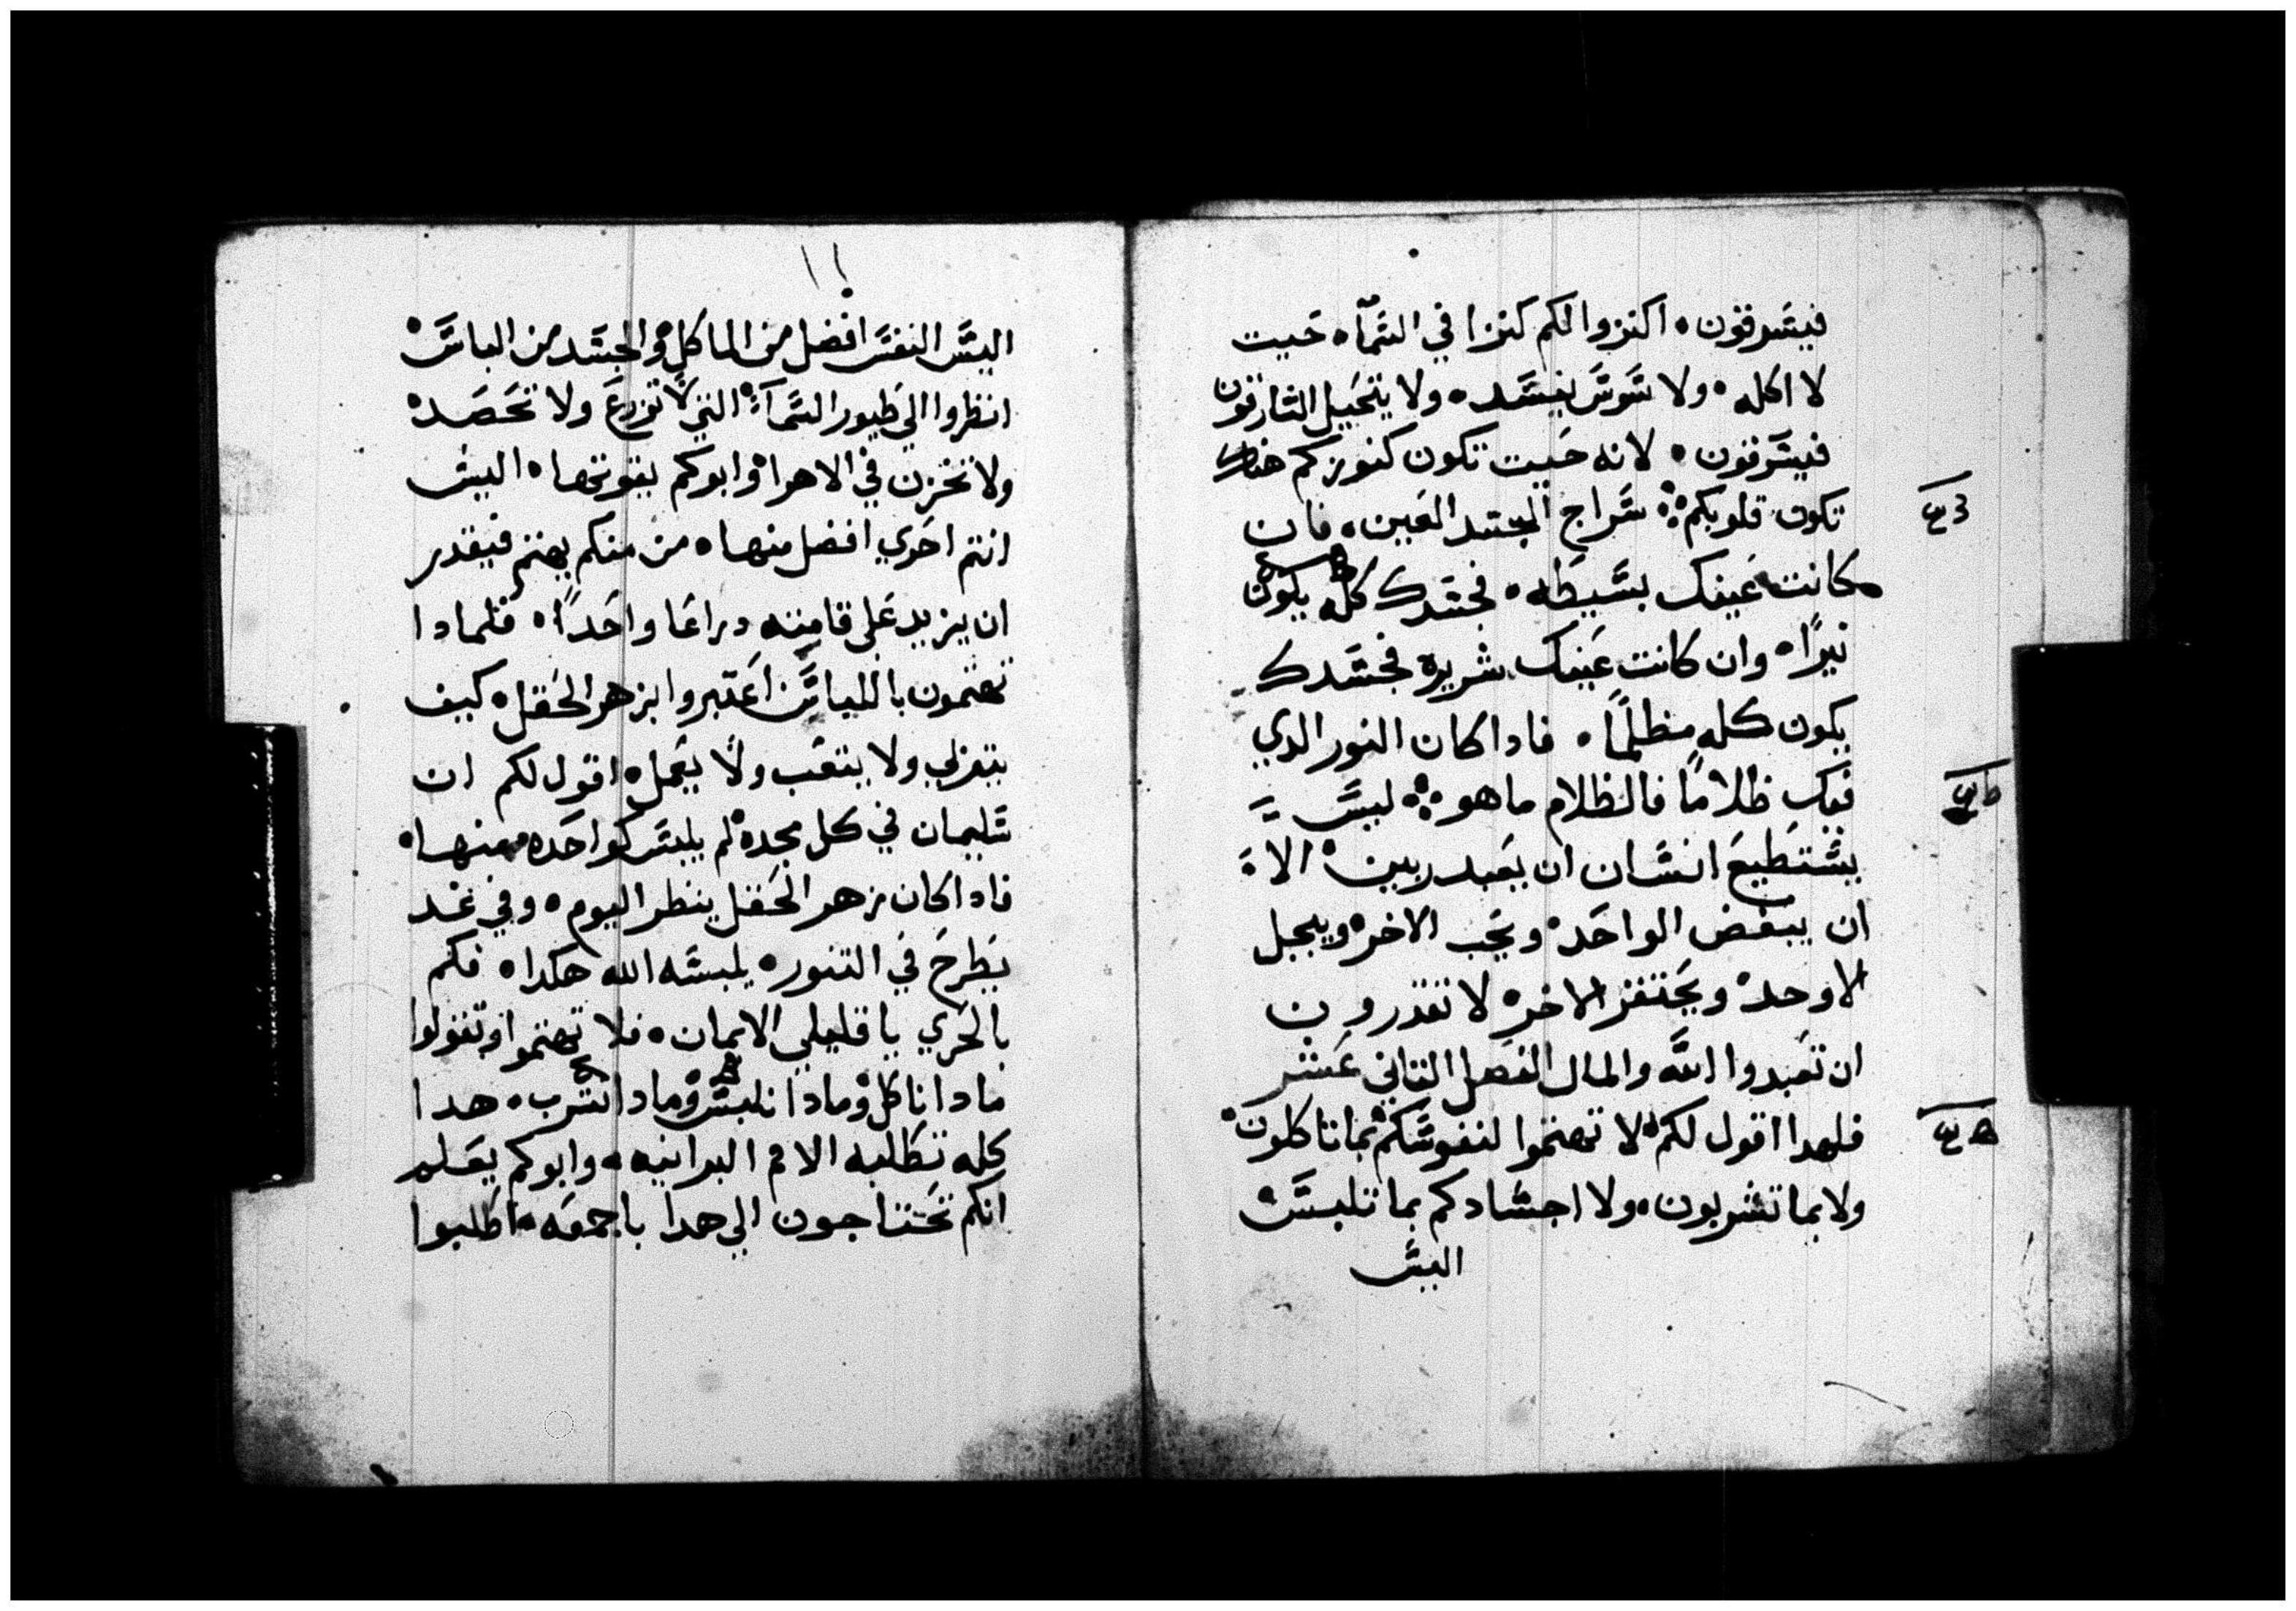 فيسرقون ۰ اكنزوا لكم كنزا في السمآ ۰ حيت
لا اكله ۰ ولا سوس يفسد ۰ ولا يتحيل السارقون
فيسرقون ۰ لانه حيت تكون كنوزكم هناك
تكون قلوبكم ܀ سراج الجسد العين ۰ فان
كانت عينك بسيطه ۰ فجسدك كله يكون
نيرًا ۰ وان كانت عينك شريرة فجسدك
يكون كله مظلمًا ۰ فادا كان النور الدي
فيك ظلامًا فالظلام ما هو ܀ ليس
يستطيع انسان ان يعبد ربين ۰ الا
ان يبغض الواحد ۰ ويحب الاخر ۰ ويبجل
الاوحد ۰ ويحتقر الاخر ۰ لا تقدرون
ان تعبدوا الله والمال الفصل التاني عشر
فلهدا اقول لكم ۰ لا تهتموا لنفوسكم بما تاكلون ۰
ولا بما تشربون ۰ ولا اجسادكم بما تلبس ۰
اليس
١١
اليس النفس افضل من الماكل ۰ والجسد من الباس ۰
انظروا الي طيور السمآء ۰ التي لا تزرع ولا تحصد ۰
ولا تخزن في الاهرا ۰ وابوكم يقوتها ۰ اليس
انتم احري افضل منها ۰ من منكم يهتم فيقدر
ان يزيد علي قامته دراعا واحدًا ۰ فلمادا
تهتمون باللباس اعتبروا بزهر الحقل ۰ كيف
يتربي ولا يتعب ولا يعمل ۰ اقول لكم ان
سليمان في كل مجده ۰ لم يلبس كواحده منها ۰
فادا كان زهر الحقل ينظر اليوم ۰ وفي غد
يطرح في التنور ۰ يلبسه الله هكدا ۰ فكم
بالحري يا قليلي الايمان ۰ فلا تهتموا وتقولوا
مادا ناكل ۰ ومادا نلبس ۰ ومادا نشرب ۰ هدا
كله تطلبه الامم البرانيه ۰ وابوكم يعلم
انكم تحتاجون الي هدا باجمعه ۰ اطلبوا